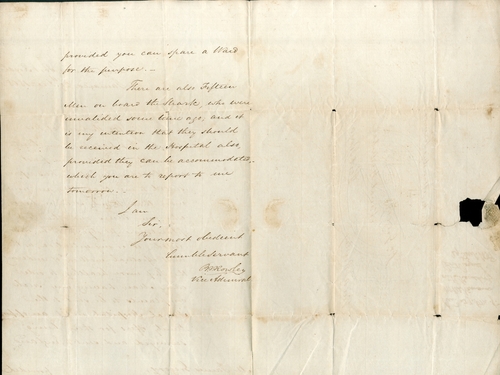 provided you can spare a Ward
for the purpose. —
There are also Fifteen
Men on board the Shark, who were
invalided some time ago, and it
is my intention that they should
be received in the Hospital also,
provided they can be accommodated,
which you are to report to me
tomorrow. —
I am
Sir,
Your most obedient
humble Servant
B Rowley
Vice Admiral